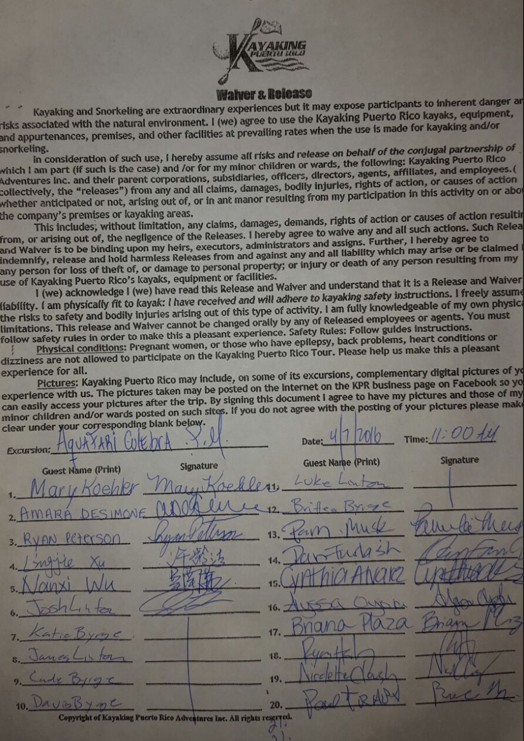 KAYAKING
PUERTO RICO
Waiver & Release
Kayaking and Snorkeling are extraordinary experiences but it may expose participants to inherent danger an
risks associated with the natural environment. I (we) agree to use the Kayaking Puerto Rico kayaks, equipment,
and appurtenances, premises, and other facilities at prevailing rates when the use is made for kayaking and/or
snorkeling.
In consideration of such use, I hereby assume all risks and release on behalf of the conjugal partnership of
which I am part (if such is the case) and/or for my minor children or wards, the following: Kayaking Puerto Rico
Adventures Inc. and their parent corporations, subsidiaries, officers, directors, agents, affiliates, and employees.(
collectively, the "releases") from any and all claims, damages, bodily injuries, rights of action, or causes of action
whether anticipated or not, arising out of, or in ant manor resulting from my participation in this activity on or abou
the company's premises or kayaking areas.
This includes; without limitation, any claims, damages, demands, rights of action or causes of action resultin
from, or arising out of, the negligence of the Releases. I hereby agree to waive any and all such actions. Such Relea
and Waiver is to be binding upon my heirs, executors, administrators and assigns. Further, I hereby agree to
indemnify, release and hold harmless Releases from and against any and all liability which may arise or be claimed
any person for loss of theft of, or damage to personal property; or injury or death of any person resulting from my
use of Kayaking Puerto Rico's kayaks, equipment or facilities.
I (we) acknowledge I (we) have read this Release and Waiver and understand that it is a Release and Waiver
liability. I am physically fit to kayak: I have received and will adhere to kayaking safety instructions. I freely assume
the risks to safety and bodily injuries arising out of this type of activity. I am fully knowledgeable of my own physica
limitations. This release and Waiver cannot be changed orally by any of Released employees or agents. You must
follow safety rules in order to make this a pleasant experience. Safety Rules: Follow guides instructions.
Physical conditions: Pregnant women, or those who have epilepsy, back problems, heart conditions or
dizziness are not allowed to participate on the Kayaking Puerto Rico Tour. Please help us make this a pleasant
experience for all.
Pictures: Kayaking Puerto Rico may include, on some of its excursions, complementary digital pictures of yo
experience with us. The pictures taken may be posted on the Internet on the KPR business page on Facebook so yo
can easily access your pictures after the trip. By signing this document I agree to have my pictures and those of my
minor children and/or wards posted on such sites. If you do not agree with the posting of your pictures please mak
clear under your corresponding blank below.
Excursion: AQUAFARI Culebra Date: 4/7/2016 Time: 11:00 AM
Guest Name (Print) Signature Guest Name (Print) Signature
1. Mary Koehler Mary Koehler 11. Luke Linton
2. AMARA DESIMONE 12. Britten Byrge
3. RYAN Peterson Ryan Peterson 13. Pam Muck
4. Xu 14. Dan Furlash
5. Nanxi Wu 15. Cynthia Alvarz
6. Josh Linton 16. Alyssa
7. Katie Byrge 17. Briana Plaza Briana
8. James Linton 18.
9. Cade Byrge 19. Nicolette Clash
10. David Byrge 20. Paul
Copyright of Kayaking Puerto Rico Adventures Inc. All rights reserved.
21.